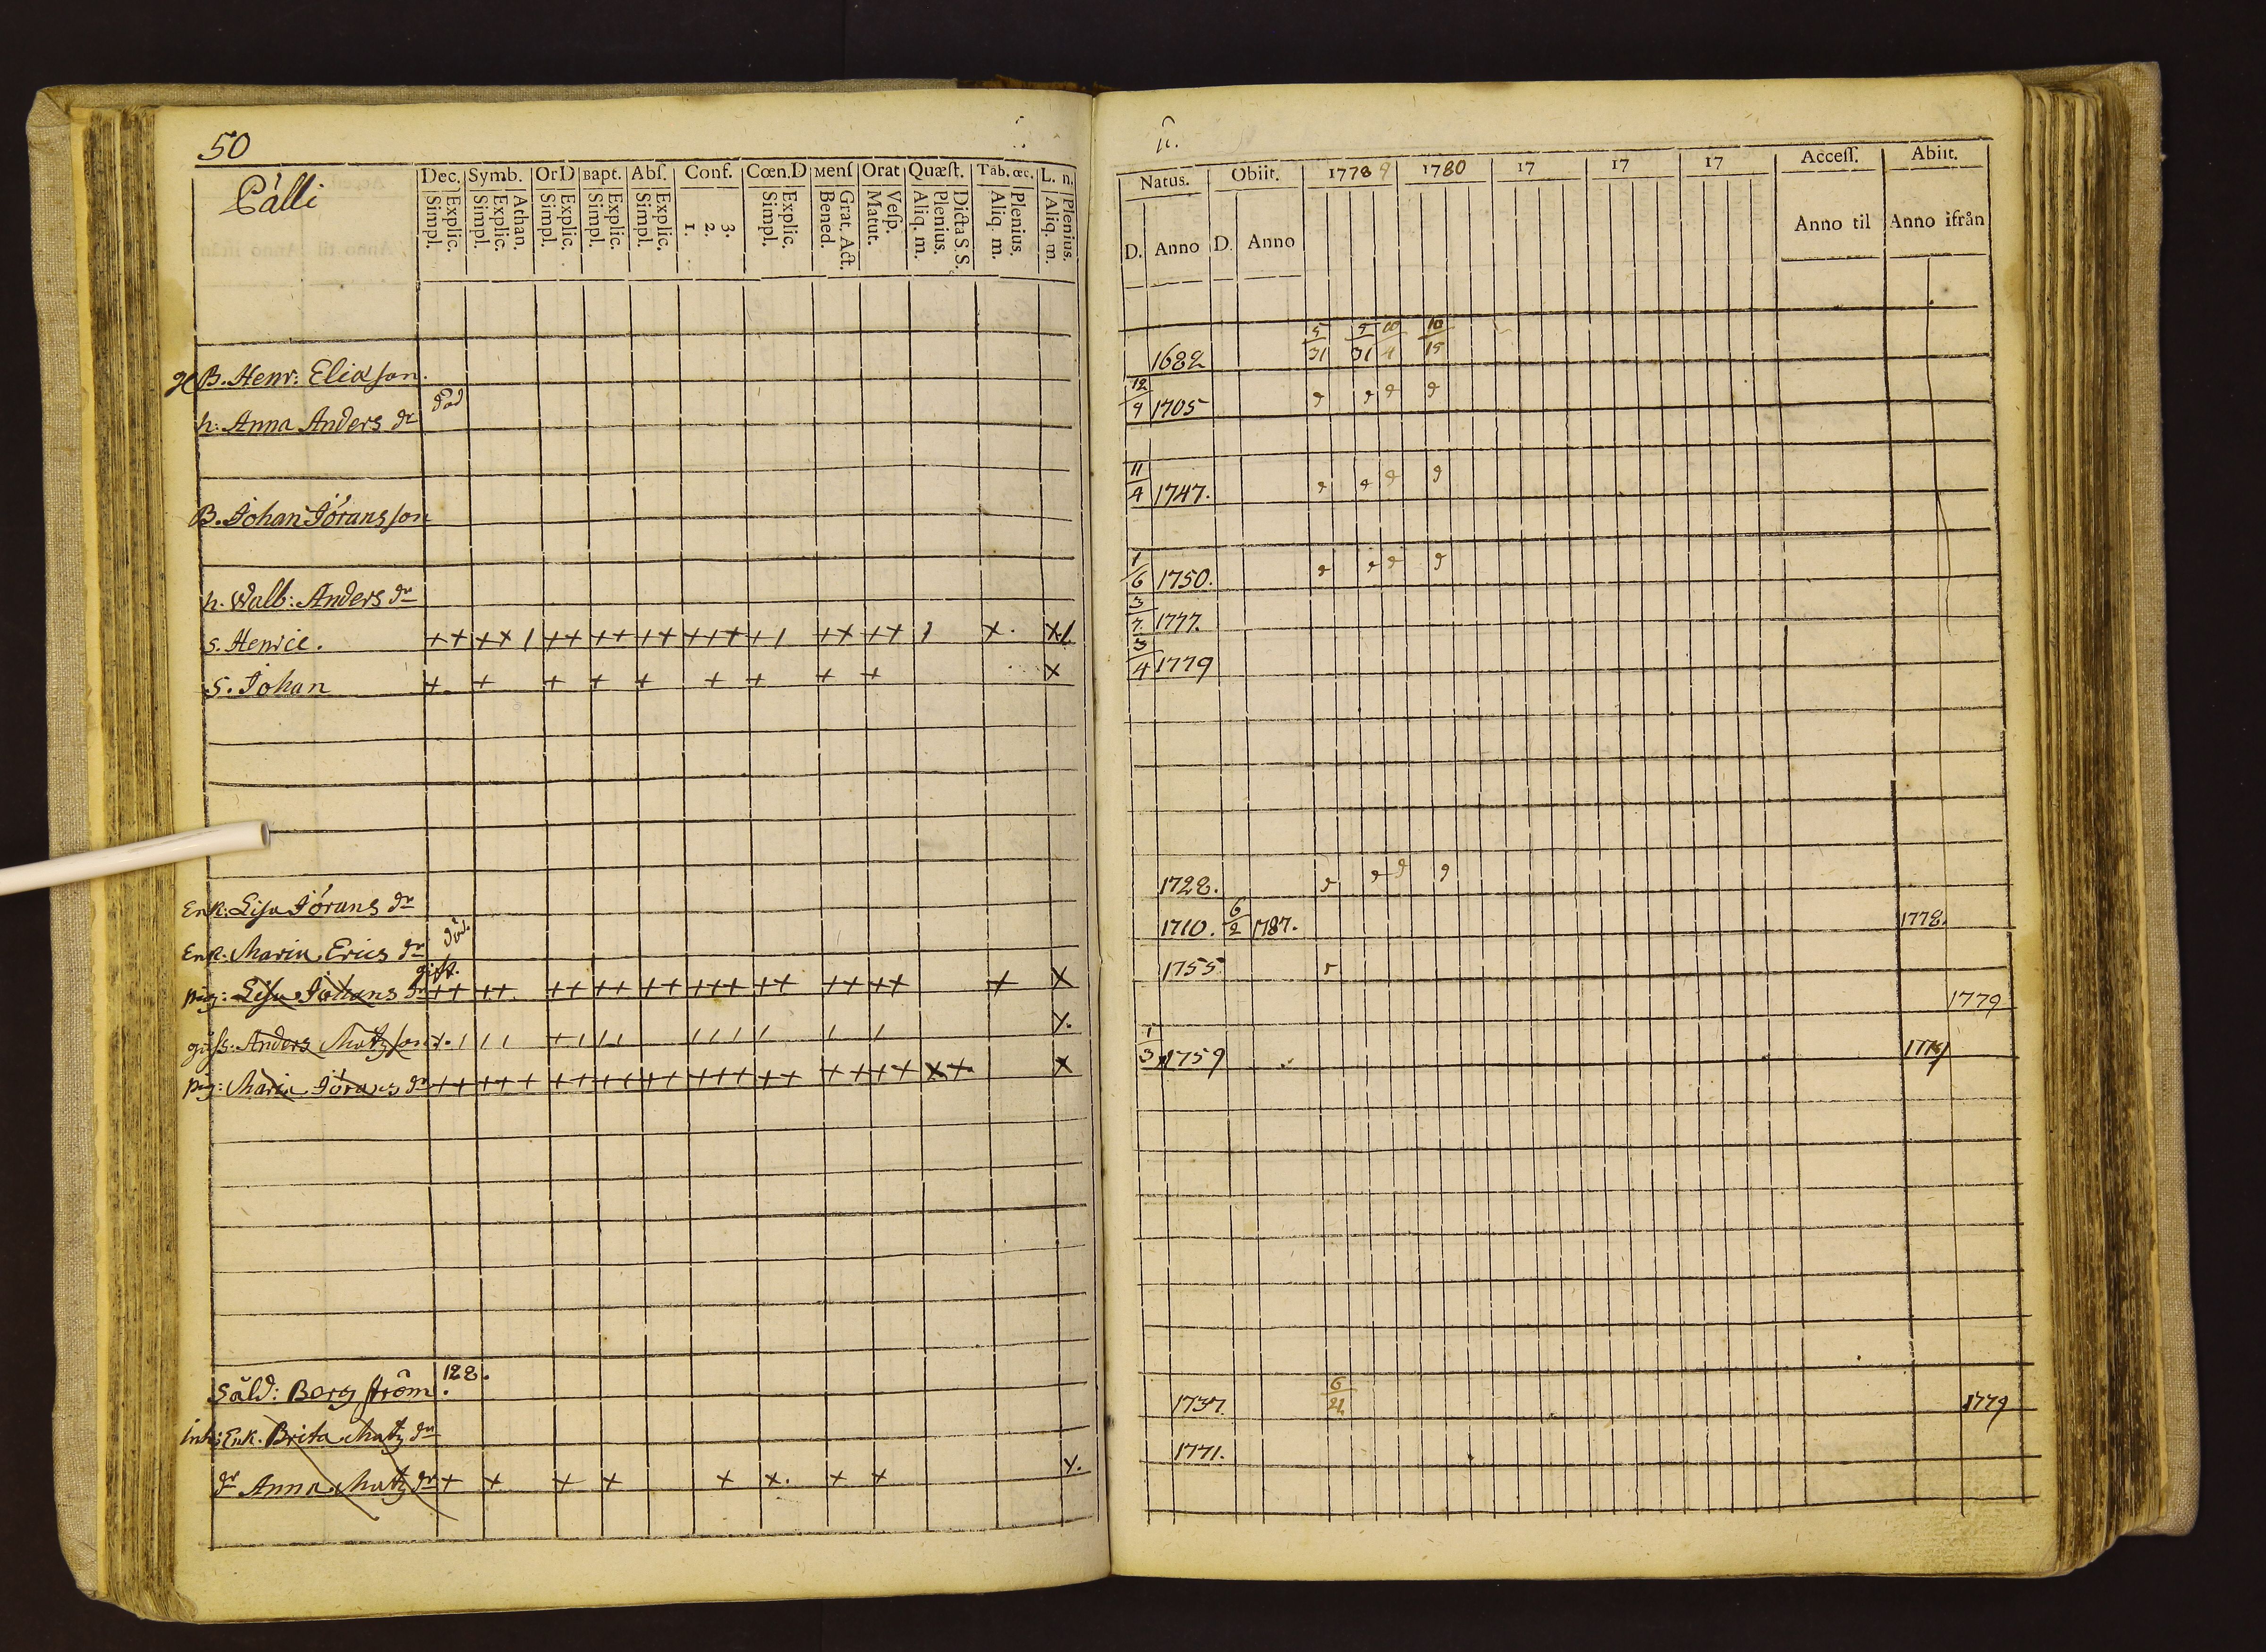 50
Pälli
Dec. Symb. OrD Bapt. Abſ. Conf. Cœn.D Menſ Orat Quæſt. Tab. œc. L. n.
Explic. Simpl. Athan. Explic. Simpl. Explic. Simpl. Explic. Simpl. Explic. Simpl. 3. 2. 1. Explic. Simpl. Grat. Act. Bened. Veſp. Matut. Dicta S. S. Plenius. Aliq. m. Plenius. Aliq. m. Plenius. Aliq. m.
B. Henr: Eliaſson.
h. Anna Anders dr död
B. Johan Jöransſon
h. Walb: Anders dr
s. Henric. ++ ++/ ++ ++ ++ +++ +/ ++ ++ / x. x/
s. Johan + + + + + + + + + x
Enk: Lisa Jörans dr
Enk. Maria Erics dr död.
pig: Lisa Johans dr gift. ++ ++ ++ ++ ++ +++ ++ ++ ++ + x
Anders Matzſon
pig: Maria Jörans dr ++ +++ ++ ++ ++ +++ ++ ++ ++ x+ x
Sold: Bergström. 128.
Inh: Enk. Brita Matz dr
dr Anna Matz dr + + + + + x. + +
Natus. Obiit. 1778 9 1780 17 17 17 Acceſſ. Abiit.
D. Anno D. Anno Anno til Anno ifrån
1682 5/31 5/31 10/15
12/9 1705
11/4 1747.
1/6 1750.
3/7 1777.
3/4 1779
1728.
1710. 6/2 1787. 1778.
1755.
1779
1/3 1759
1737. 6/21 1779
1771.